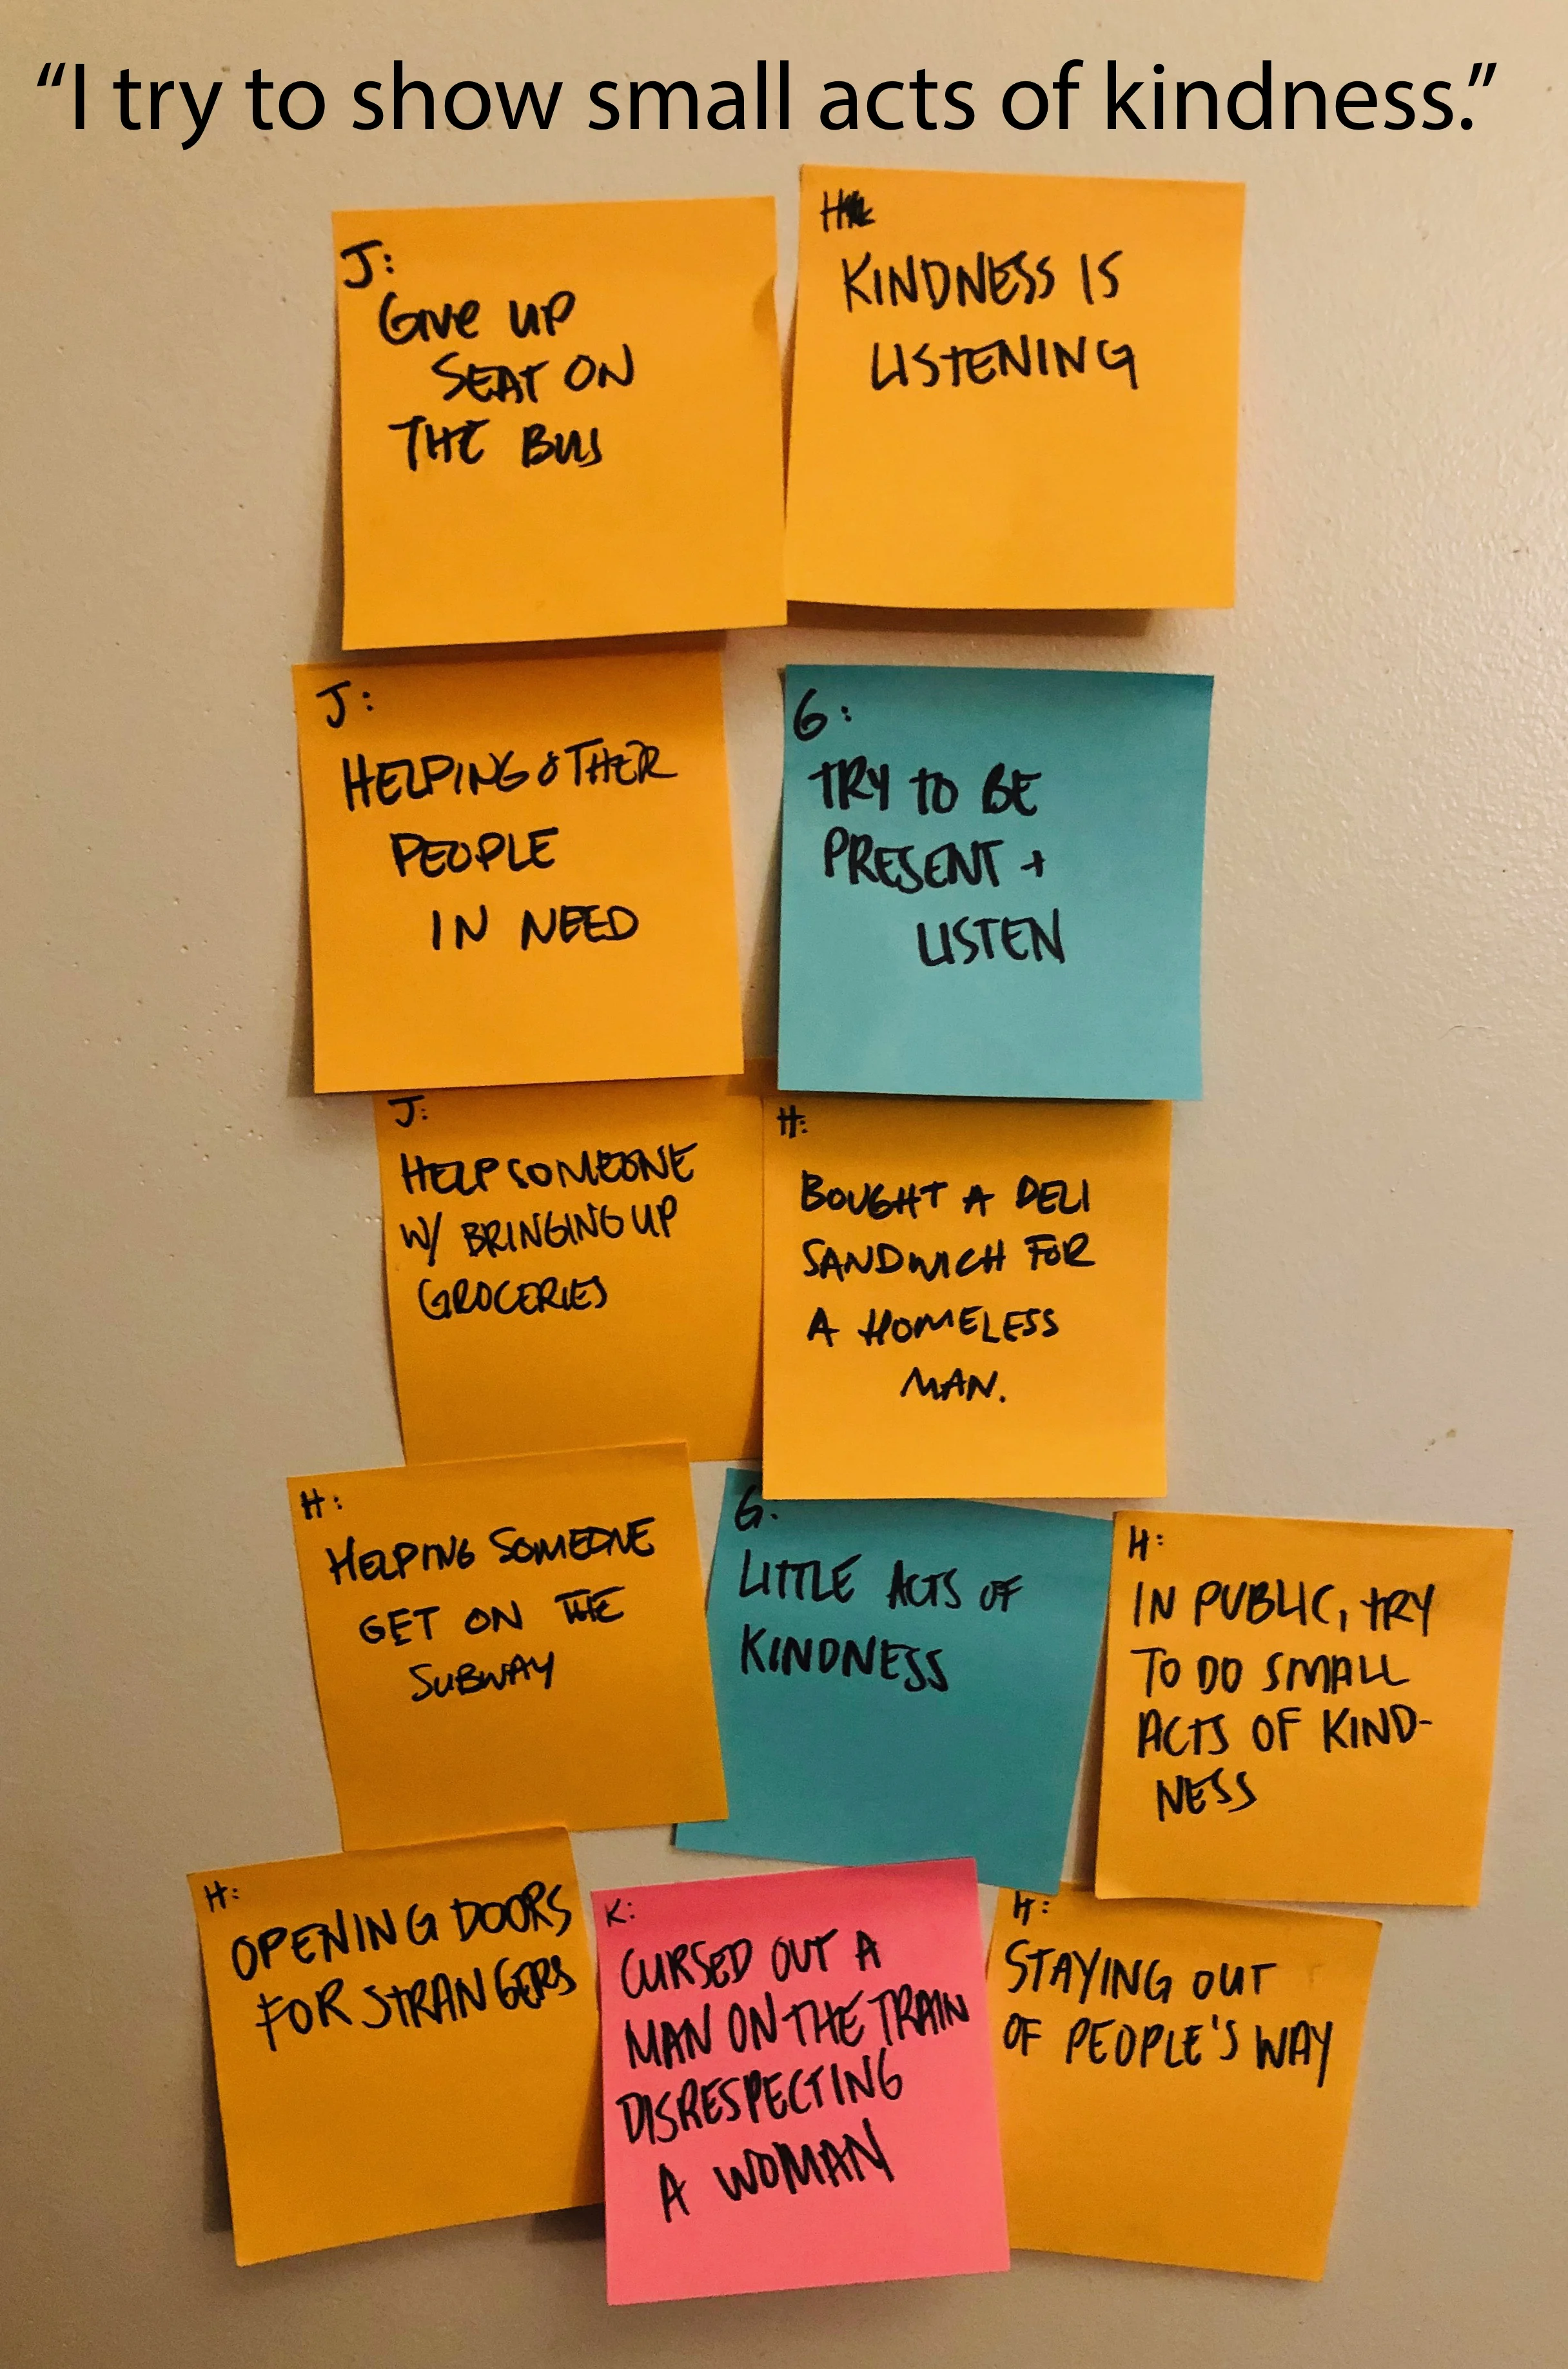 “I try to show small acts of kindness.”
J:
GIVE UP
SEAT ON
THE BUS
H
KINDNESS IS
LISTENING
J:
HELPING OTHER
PEOPLE
IN NEED
G:
TRY TO BE
PRESENT +
LISTEN
J:
HELP SOMEONE
W/ BRINGING UP
GROCERIES
H:
BOUGHT A DELI
SANDWICH FOR
A HOMELESS
MAN.
H:
HELPING SOMEONE
GET ON THE
SUBWAY
G:
LITTLE ACTS OF
KINDNESS
H:
IN PUBLIC, TRY
TO DO SMALL
ACTS OF KIND-
NESS
H:
OPENING DOORS
FOR STRANGERS
K:
CURSED OUT A
MAN ON THE TRAIN
DISRESPECTING
A WOMAN
H:
STAYING OUT
OF PEOPLE'S WAY